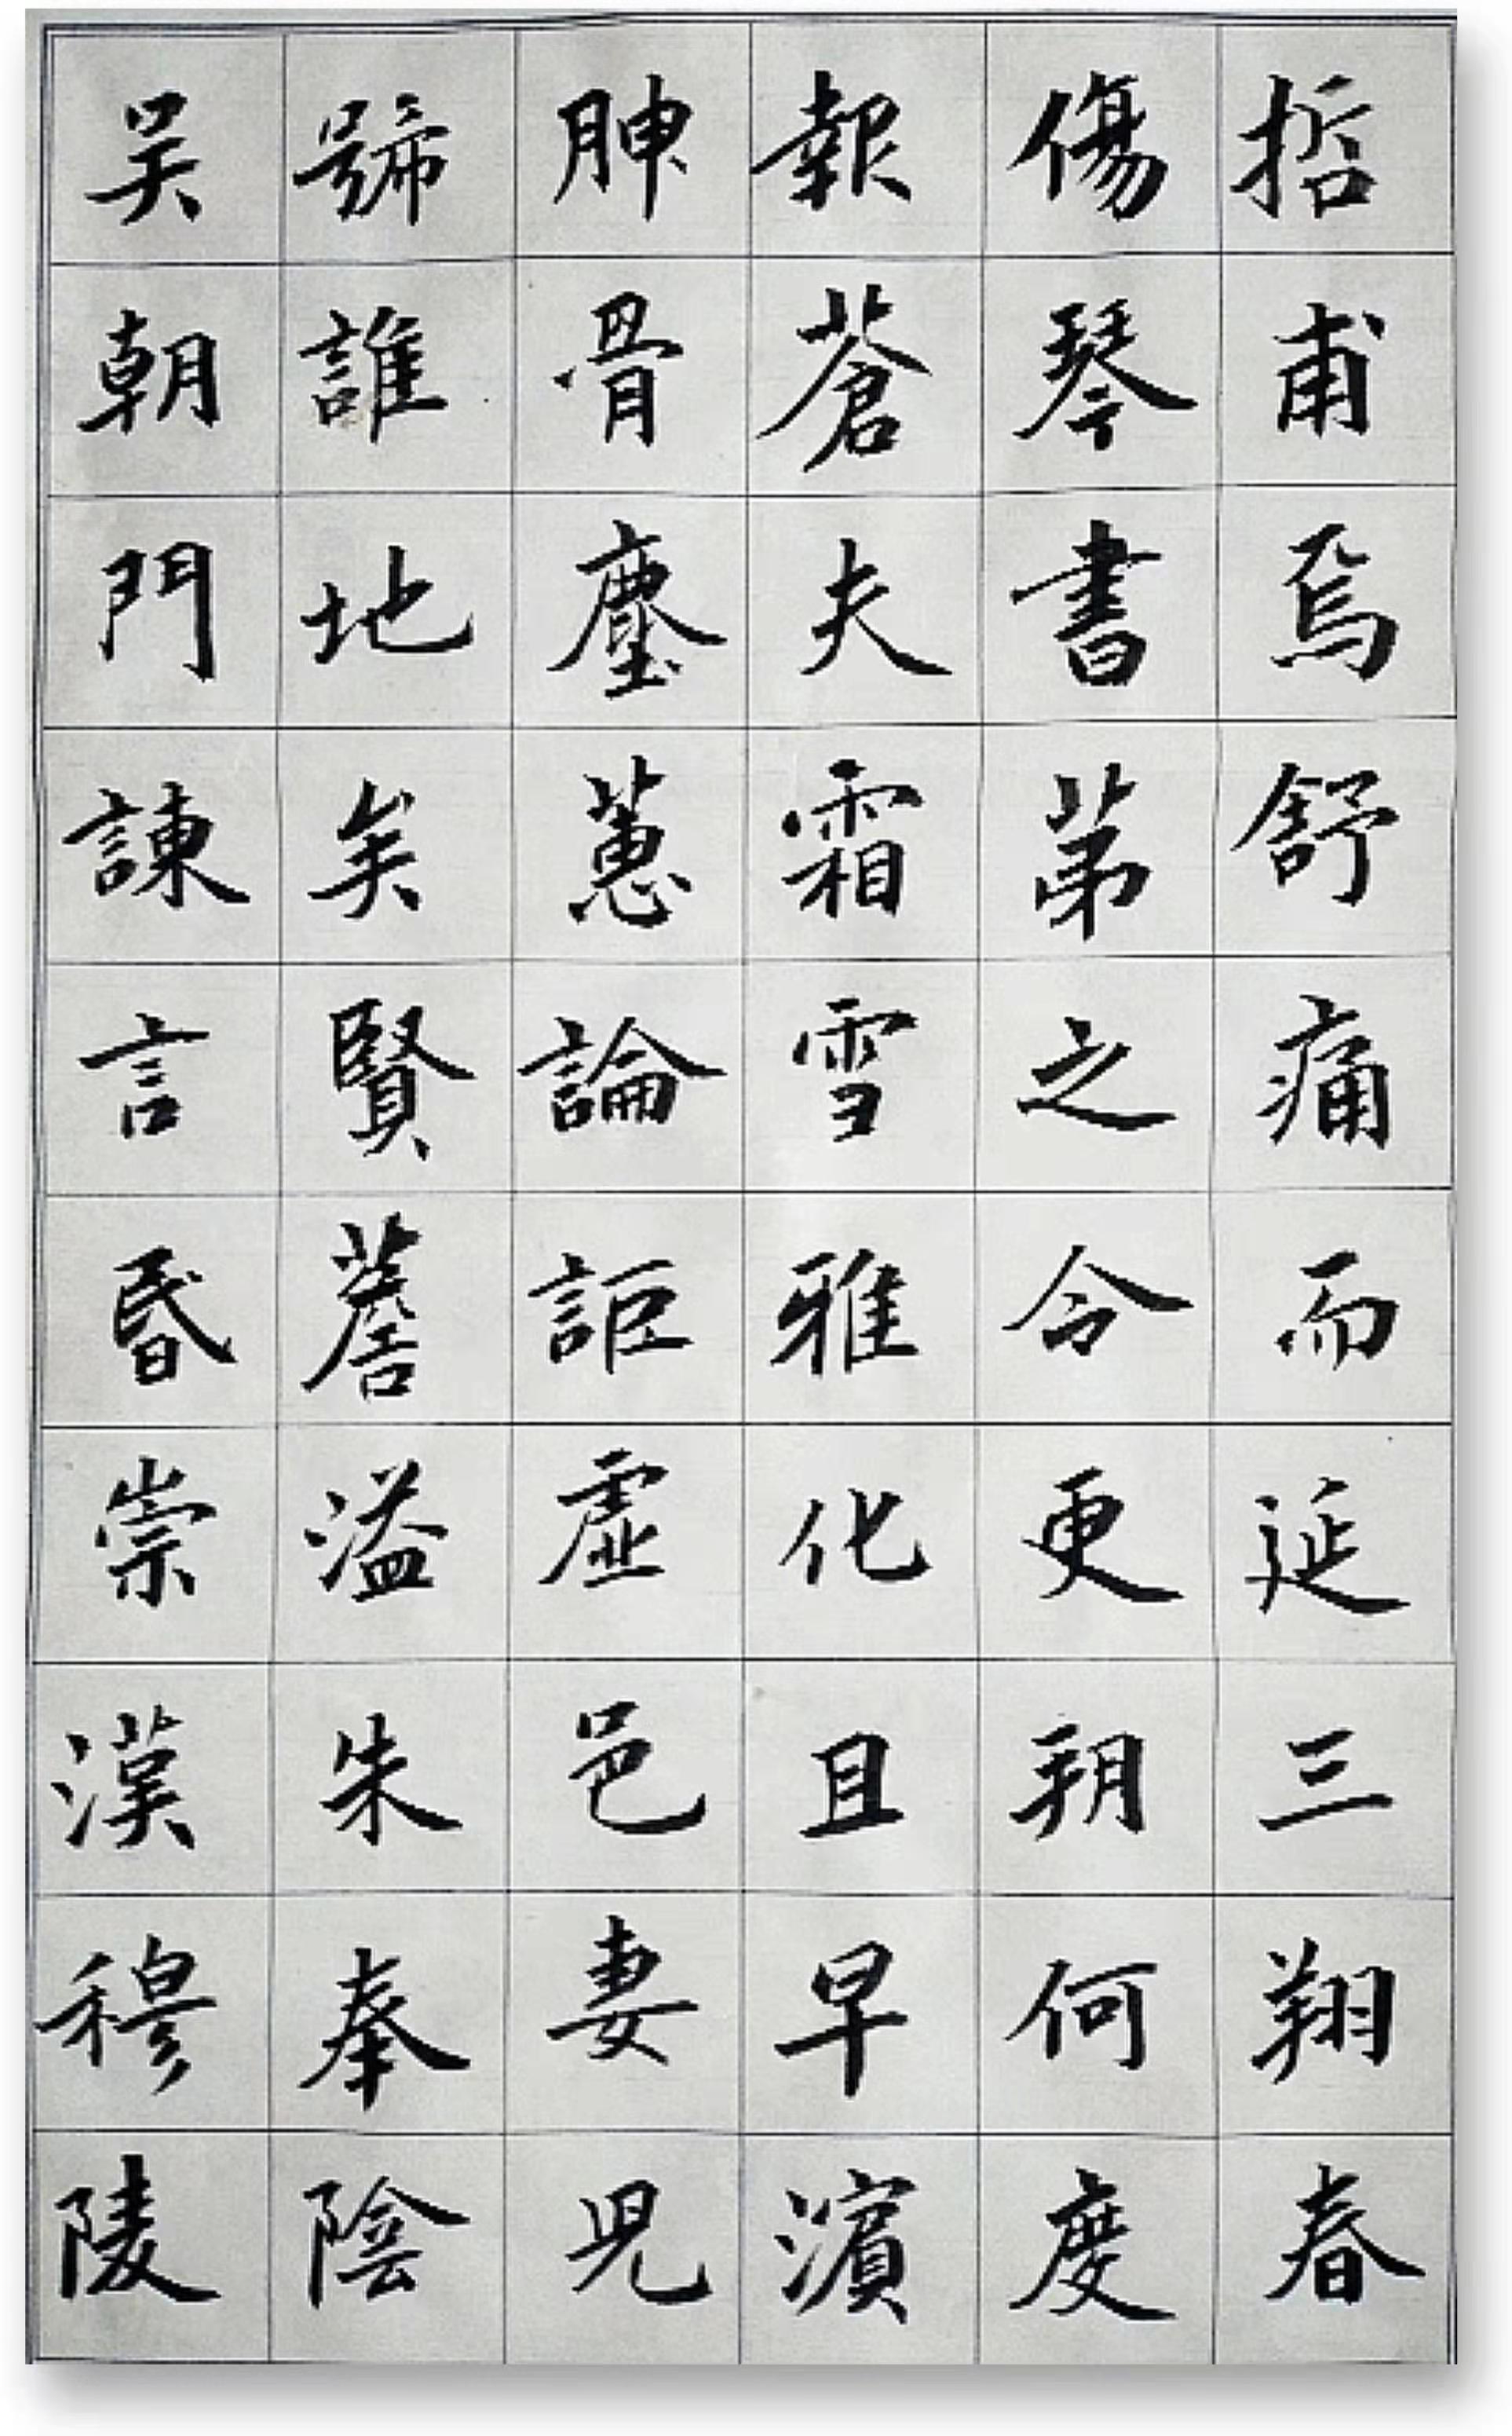 哲甫焉舒痛而延三翔春
傷琴書苐之令更朔何度
報蒼夫霜雪雅化且早濵
胂骨塵論詎虛邑妻児
誰地矣賢溢朱奉陰
吴朝門諫言昬崇漢穆陵